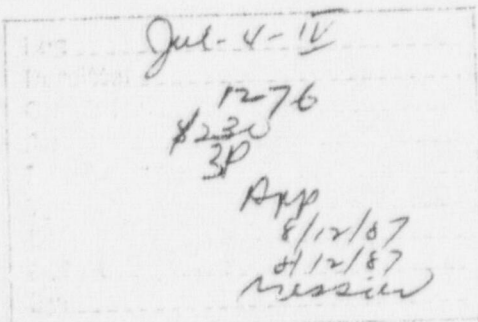 Jul-4-IV
12-76
$230
3P
App
8/12/87
8/12/87
Messier